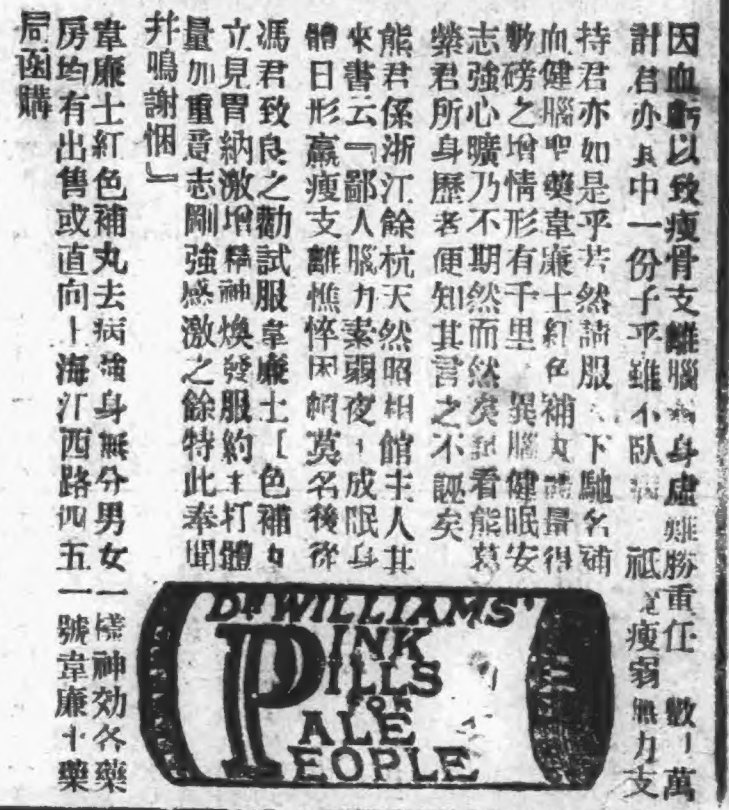 因血虧以致瘦骨支離腦 身虛難勝重任 數 萬
計君亦 中一份子乎雖不臥 祇 瘦弱無力支
持君亦如是乎若然請服 下馳名補
血健腦聖藥韋廉士紅色補丸 得
數磅之增情形有千里 異腦健眠安
志強心曠乃不期然而然矣 看熊慕
縈君所身歷者便知其言之不誣矣
熊君係浙江餘杭天然照相館主人其
來書云『鄙人腦力素弱夜 成眠身
體日形羸瘦支離憔悴困頓莫名後從
馮君致良之勸試服韋廉士 色補
立見胃納激增精神煥發服約 打體
量加重意志剛強感激之餘特此奉聞
并鳴謝悃』
韋廉士紅色補丸去病強身無分男女一樣神効各藥
房均有出售或直向上海江西路四五一號韋廉士藥
局函購
DR WILLIAMS'
PINK
PILLS
FOR
PALE
PEOPLE